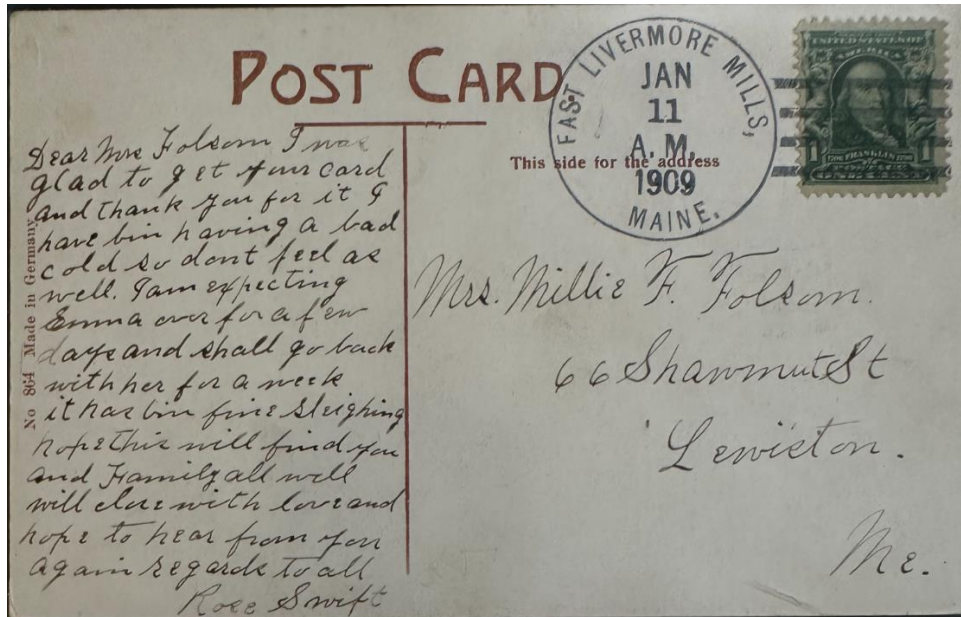 POST CARD
This side for the address
EAST LIVERMORE MILLS,
JAN
11
A.M.
1909
MAINE.
UNITED STATES OF
AMERICA
1 FRANKLIN 1
ONE CENT
No 864 Made in Germany
Dear Mrs Folsom I was
glad to get your card
and thank you for it I
have bin having a bad
cold so dont feel as
well. I am expecting
Emma over for a few
days and shall go back
with her for a week
it has bin fine sleighing
hope this will find you
and Family all well
will close with love and
hope to hear from you
again regards to all
Rose Swift
Mrs. Millie F. Folsom.
66 Shawmut St
Lewiston.
Me.